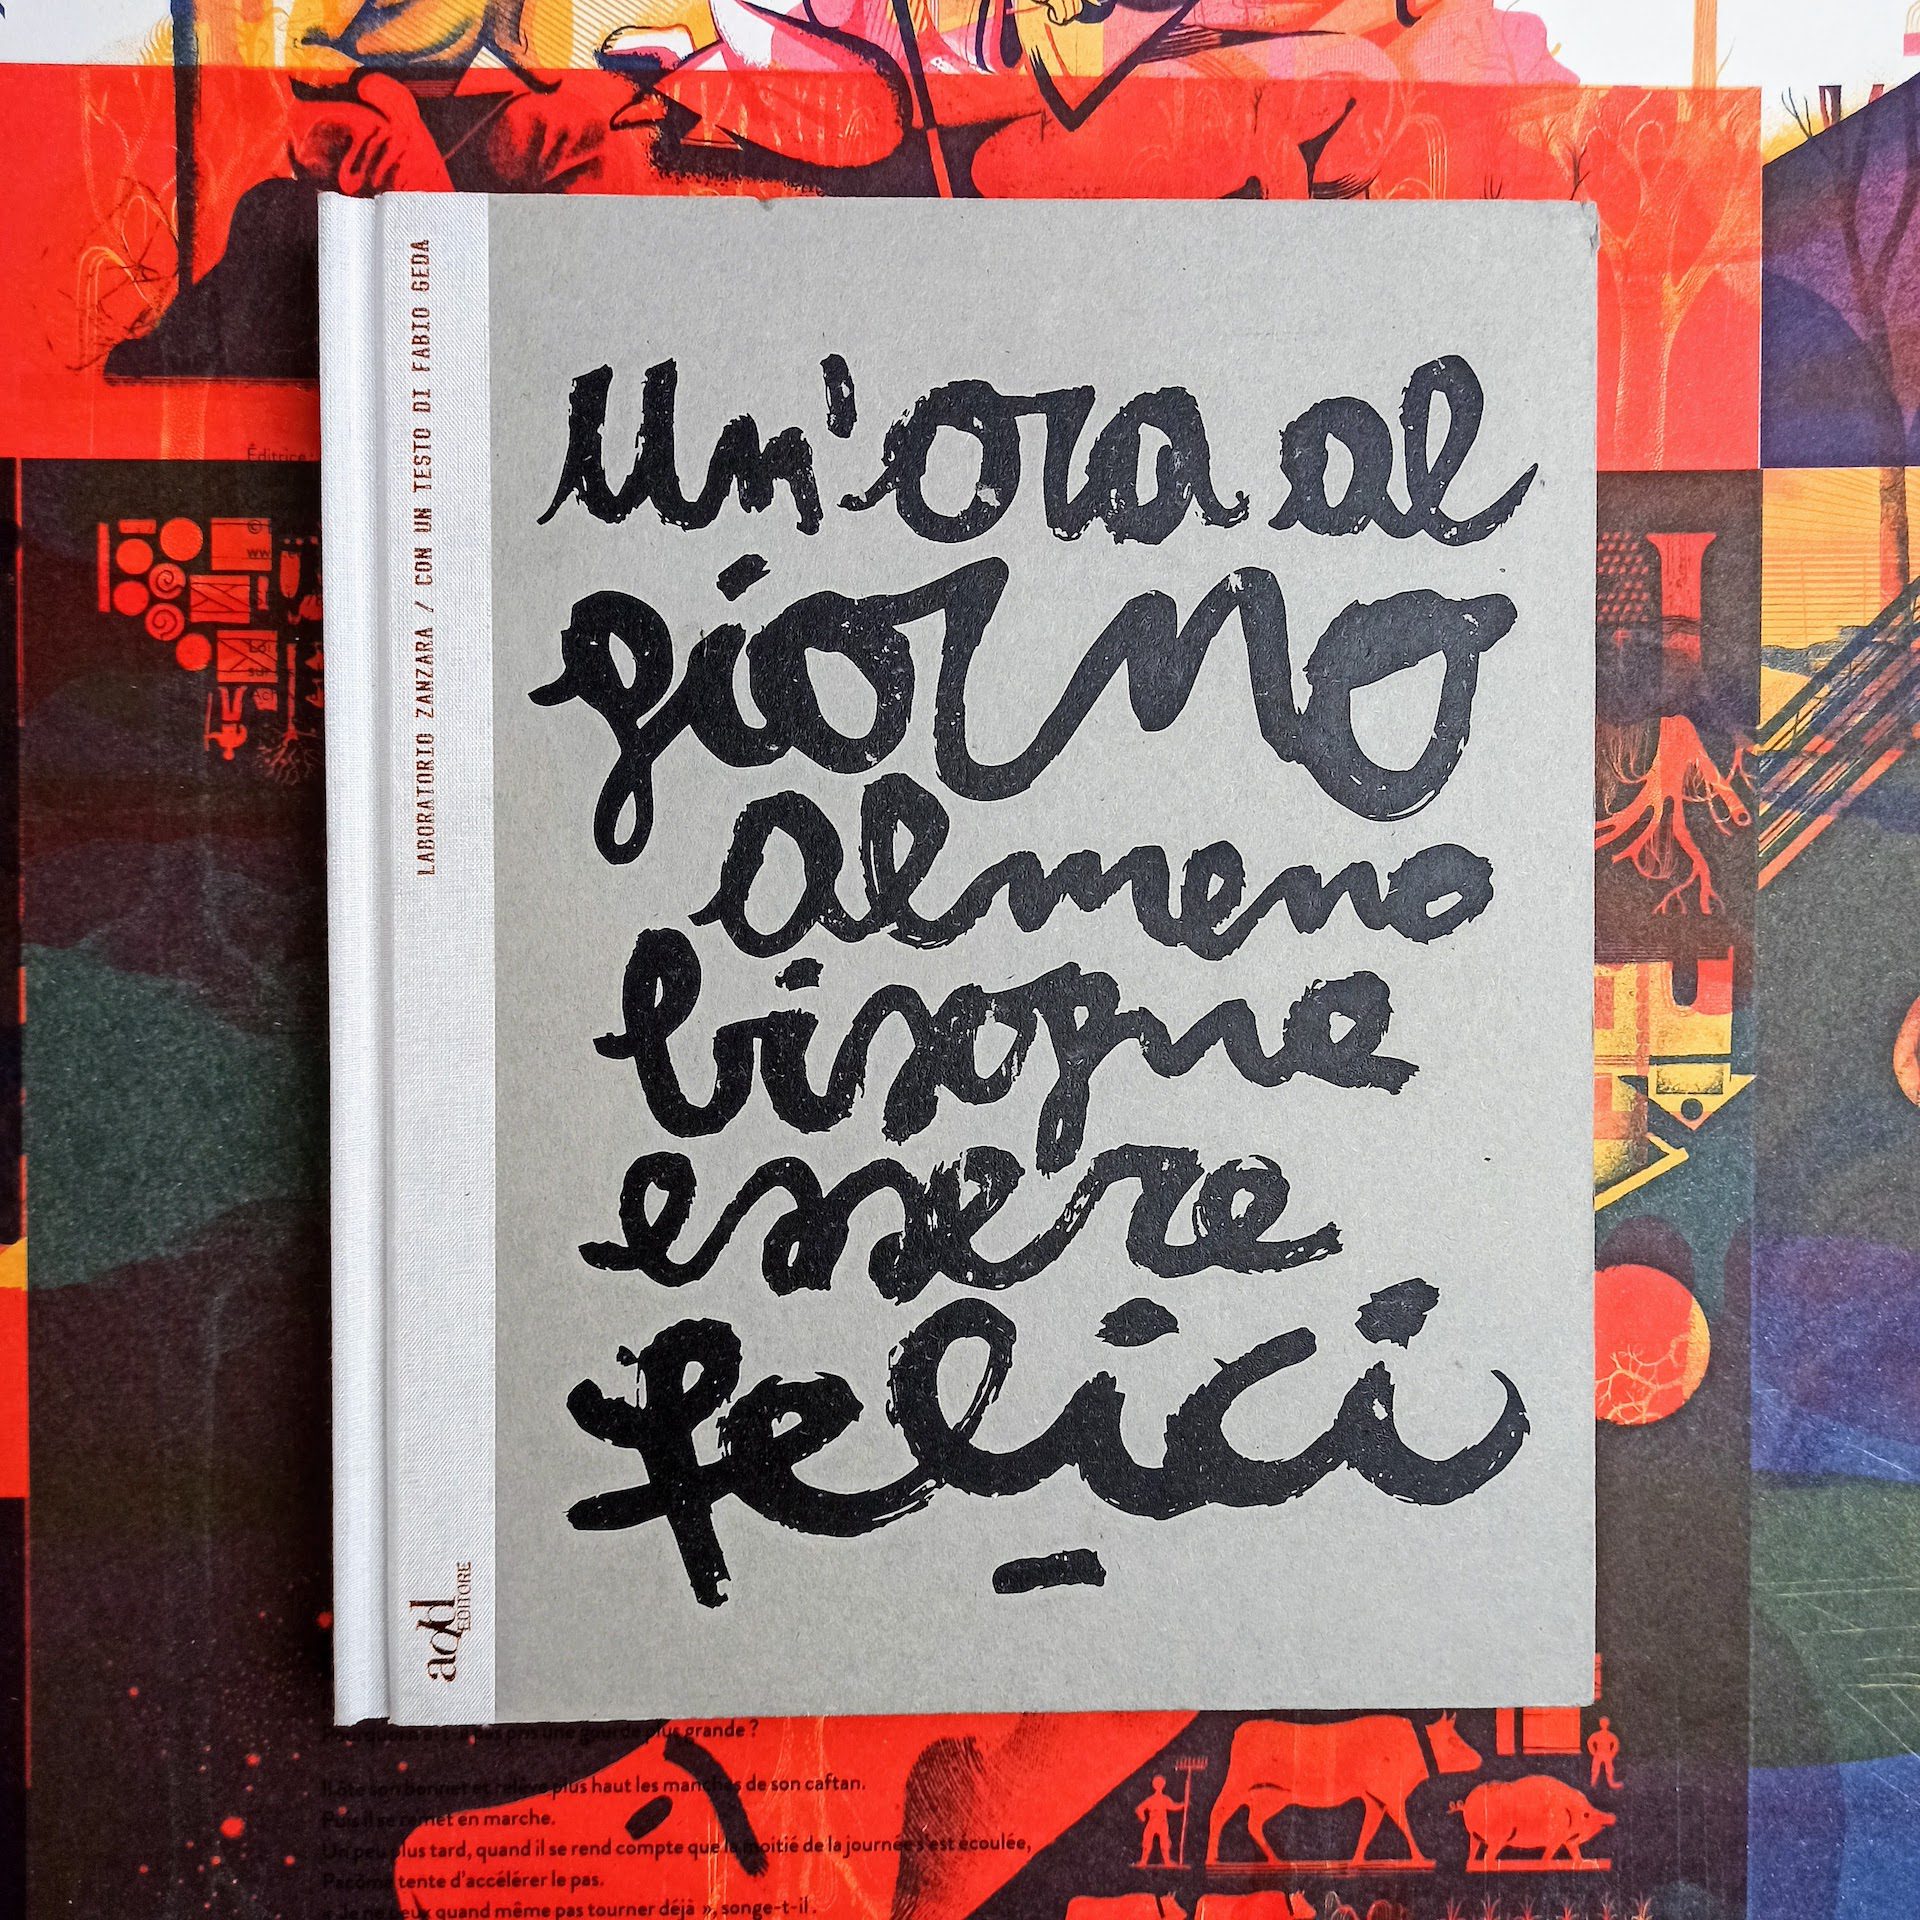 LABORATORIO ZANZARA / CON UN TESTO DI FABIO GEDA
add
EDITORE
Un'ora al
giorno
almeno
bisogne
essere
felici
Éditrice
©
plus grande ?
Il ôte son bonnet et relève plus haut les manches de son caftan.
Puis il se remet en marche.
Un peu plus tard, quand il se rend compte que la moitié de la journée s'est écoulée,
Pacôme tente d'accélérer le pas.
« Je ne peux quand même pas tourner déjà », songe-t-il.